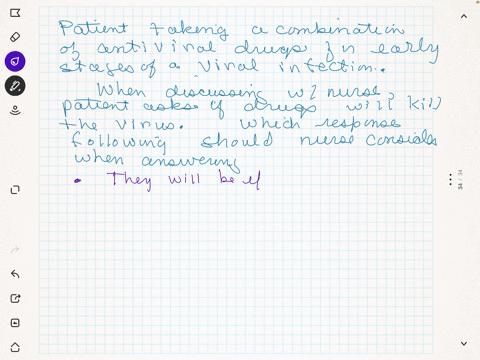 Patient taking a combination
of antiviral drugs for early
stages of a viral infection.
When discussing w/ nurse,
patient asks if drugs will kill
the virus. Which response
following should nurse consider
when answering
• They will be ef
34 / 34